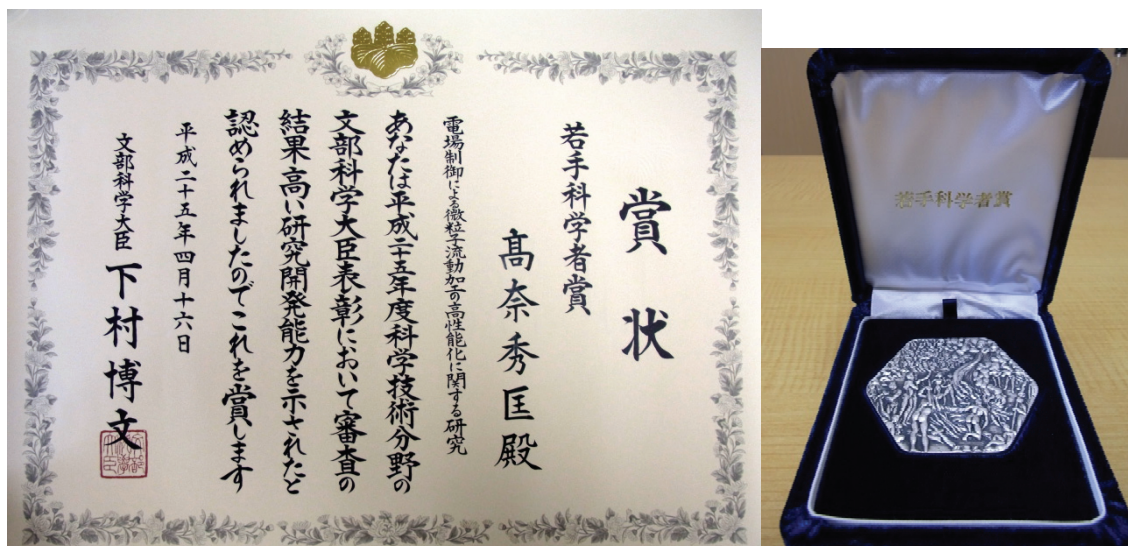 賞状
若手科学者賞
髙奈秀匡殿
電場制御による微粒子流動加工の高性能化に関する研究
あなたは平成二十五年度科学技術分野の
文部科学大臣表彰において審査の
結果高い研究開発能力を示されたと
認められましたのでこれを賞します
平成二十五年四月十六日
文部科学大臣 下村博文
若手科学者賞